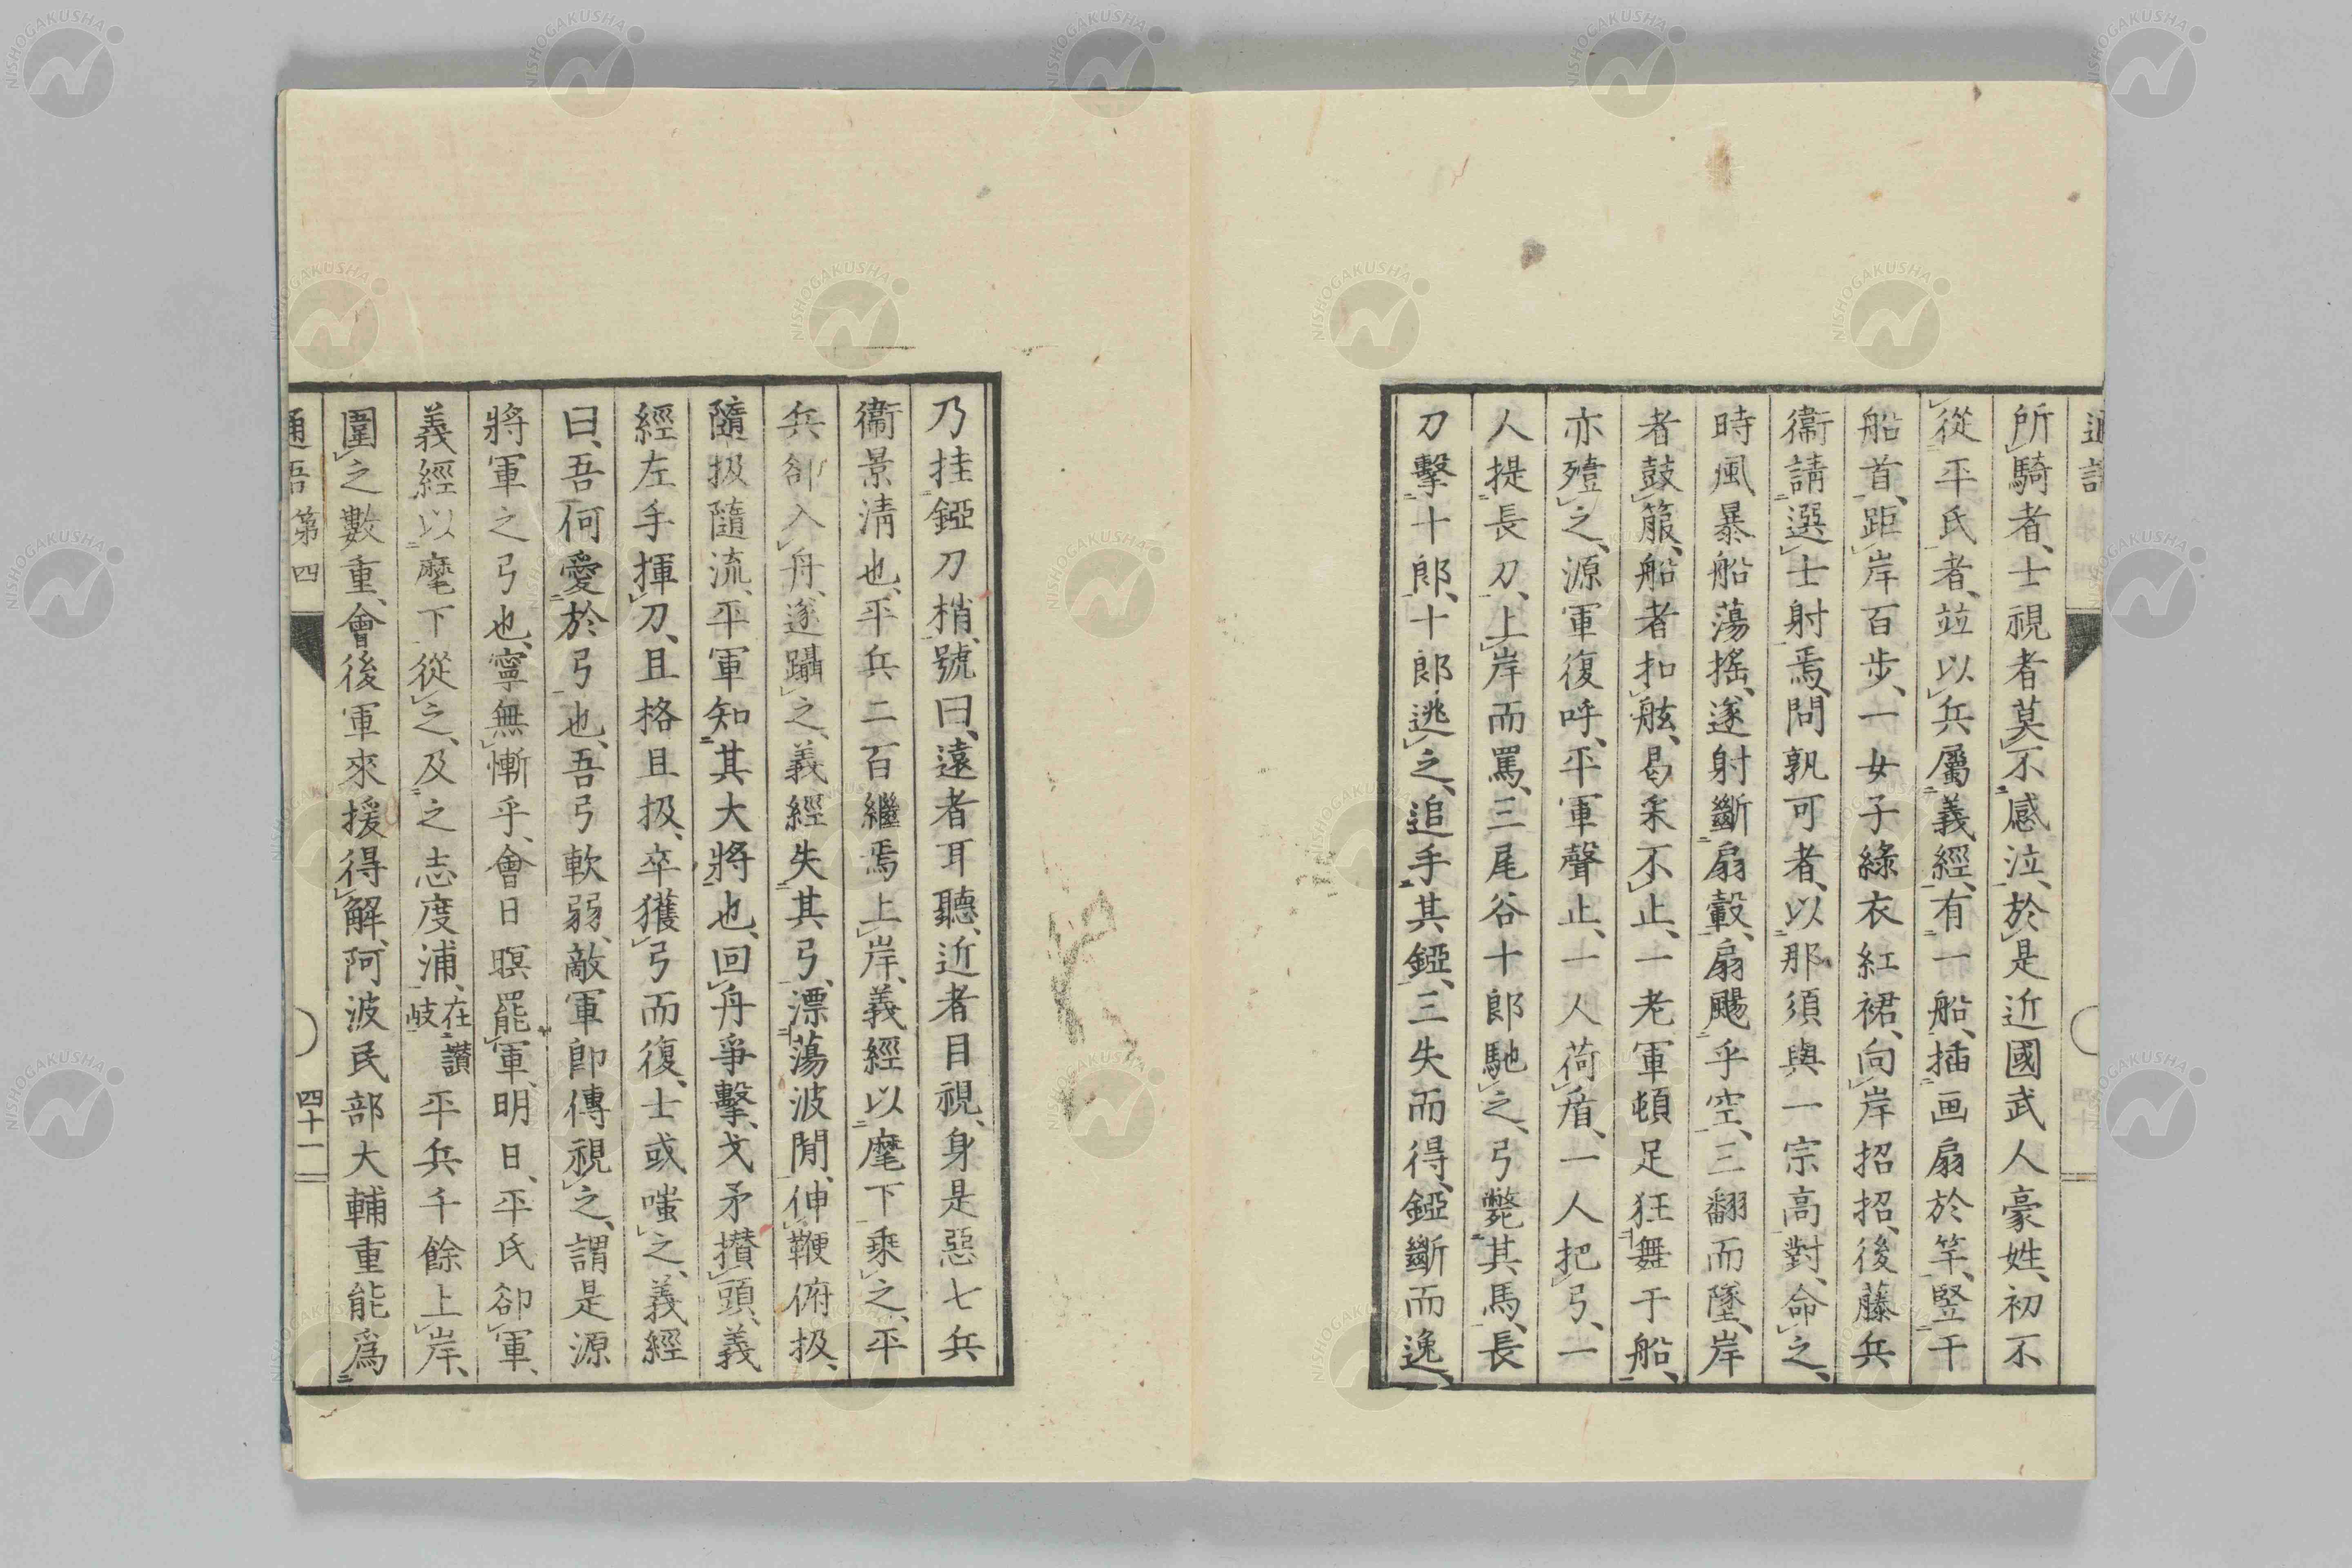 所騎者、士視者莫不感泣、於是近國武人豪姓、初不
從平氏者、竝以兵屬義經、有一船、插画扇於竿、竪干
船首、距岸百步、一女子綠衣紅裙、向岸招招、後藤兵
衞請選士射焉、問孰可者、以那須與一宗高對、命之、
時風暴船蕩搖、遂射斷扇轂、扇颺乎空、三翻而墜、岸
者鼓箙、船者扣舷、曷采不止、一老軍頓足狂舞于船、
亦殪之、源軍復呼、平軍聲止、一人荷盾、一人把弓、一
人提長刀、上岸而罵、三尾谷十郎馳之、弓斃其馬、長
刀擊十郎、十郎逃之、追手其錏、三失而得、錏斷而逸、
乃挂錏刀梢、號曰、遠者耳聽、近者目視、身是惡七兵
衞景淸也、平兵二百繼焉上岸、義經以麾下乘之、平
兵卻入舟、遂躡之、義經失其弓、漂蕩波閒、伸鞭俯扱、
隨扱隨流、平軍知其大將也、回舟爭擊、戈矛攅頭、義
經左手揮刀、且格且扱、卒獲弓而復、士或嗤之、義經
曰、吾何愛於弓也、吾弓軟弱、敵軍卽傳視之、謂是源
將軍之弓也、寧無慚乎、會日暝罷軍、明日、平氏卻軍、
義經以麾下從之、及之志度浦、在讃岐平兵千餘上岸、
圍之數重、會後軍來援得解、阿波民部大輔重能爲
通吾第四 四十一
NISHOGAKUSHA